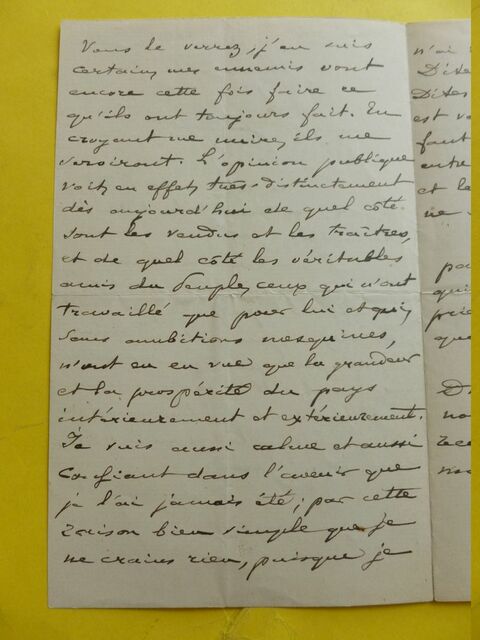 Vous le verrez, j'en suis
certain, mes ennemis vont
encore cette fois faire ce
qu'ils ont toujours fait. En
croyant me nuire, ils me
serviront. L'opinion publique
voit, en effet, très-distinctement
dès aujourd'hui de quel côté
sont les vendus et les traîtres,
et de quel côté les véritables
amis du Peuple, ceux qui n'ont
travaillé que pour lui et qui,
sans ambitions mesquines,
n'ont eu en vue que la grandeur
et la prospérité du pays
intérieurement et extérieurement.
Je suis aussi calme et aussi
confiant dans l'avenir que
je l'ai jamais été; par cette
raison bien simple que je
ne crains rien, puisque je
n'ai
Dites
Dites
est
faut
entre
et le
ne
qui
que